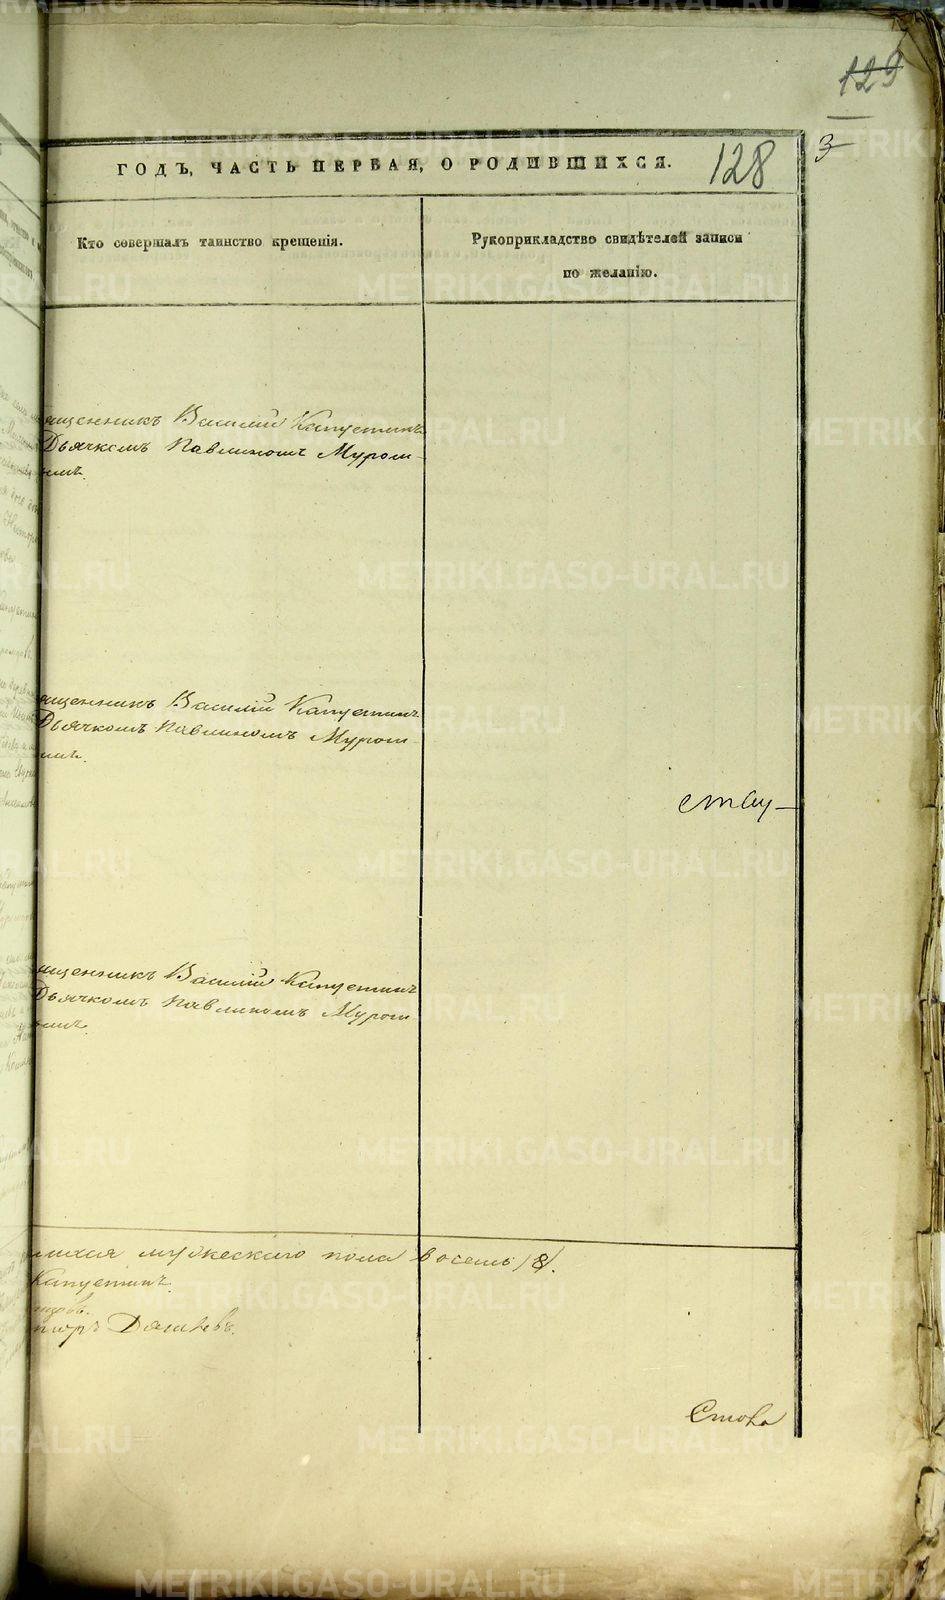 129
3
ГОДЪ, ЧАСТЬ ПЕРВАЯ, О РОДИВШИХСЯ. 128
Кто совершалъ таинство крещенія.
Рукоприкладство свидѣтелей записи
по желанію.
ященникъ Василій Капустинъ
Дьячкомъ Павлиномъ Муром-
ященникъ Василій Капустинъ
Дьячкомъ Павлиномъ Муром
ященникъ Василій Капустинъ
Дьячкомъ Павлиномъ Муром
мужескаго пола восемь /8/.
Капустинъ.
METRIKI.GASO-URAL.RU